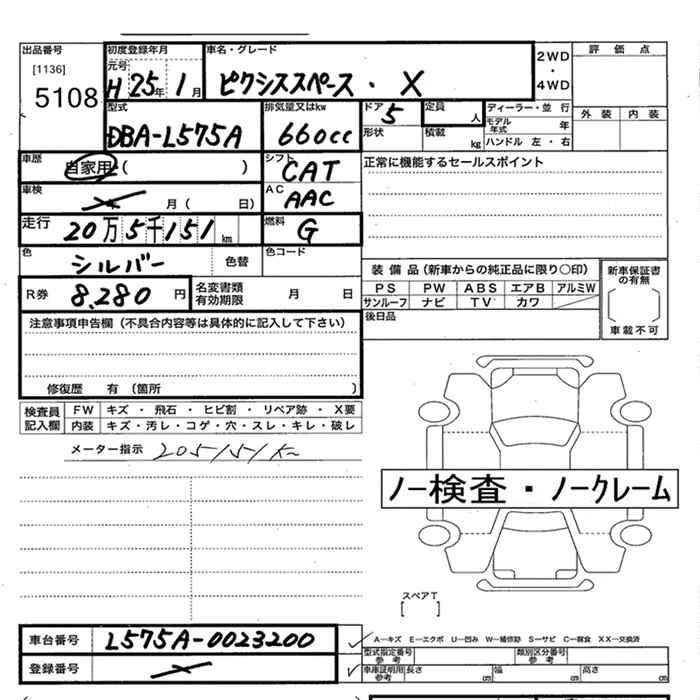 出品番号 初度登録年月 車名・グレード 2WD・4WD 評価点
[1136] 元号
5108 H25年1月 ピクシススペース・X
型式 排気量又はkw ドア 定員 ディーラー・並行 外装 内装
DBA-L575A 660cc 5 人 モデル年式 年
形状 積載 kg ハンドル 左・右
車歴 自家用( ) シフト CAT 正常に機能するセールスポイント
車検 月( 日) AC AAC
走行 20万5千151km 燃料 G
色 シルバー 色替 色コード
装備品(新車からの純正品に限り○印) 新車保証書の有無
R券 8,280円 名変書類有効期限 月 日
PS PW ABS エアB アルミW
サンルーフ ナビ TV カワ
注意事項申告欄(不具合内容等は具体的に記入して下さい) 後日品 車載不可
修復歴 有(箇所
検査員記入欄 FW キズ・飛石・ヒビ割・リペア跡・X要
内装 キズ・汚レ・コゲ・穴・スレ・キレ・破レ
メーター指示 205151K
ノー検査・ノークレーム
スペアT
[ ]
車台番号 L575A-0023200
A―キズ E―エクボ U―凹み W―補修跡 S―サビ C―腐食 XX―交換済
型式指定番号 参考 類別区分番号 参考
登録番号 車庫証明用 参考 長さ cm 幅 cm 高さ cm